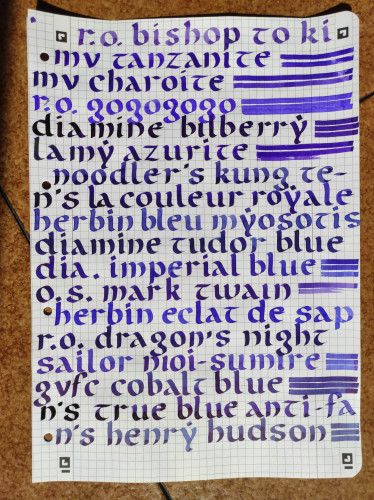 r.o. bishop to ki
mv tanzanite
mv charoite
r.o. gogogogo
diamine bilberry
lamy azurite
noodler's kung te-
n's la couleur royale
herbin bleu myosotis
diamine tudor blue
dia. imperial blue
o.s. mark twain
herbin eclat de sap
r.o. dragon's night
sailor nioi-sumire
gvfc cobalt blue
n's true blue anti-fa
n's henry hudson